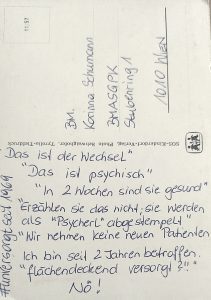 11:57
BM.
Korinna Schumann
BMASGPK
Stubenring 1
1010 WIEN
SOS-Kinderdorf-Verlag, Photo Retouchgloder, Tyrolia-Tiefdruck
"Das ist der Wechsel"
"Das ist psychisch"
"In 2 Wochen sind sie gesund"
"Erzählen sie das nicht, sie werden
als "Psycherl" abgestempelt"
"Wir nehmen keine neuen Patienten
Ich bin seit 2 Jahren betroffen.
"flächendeckend versorgt?!"
Nö!
#unversorgt seit 1969